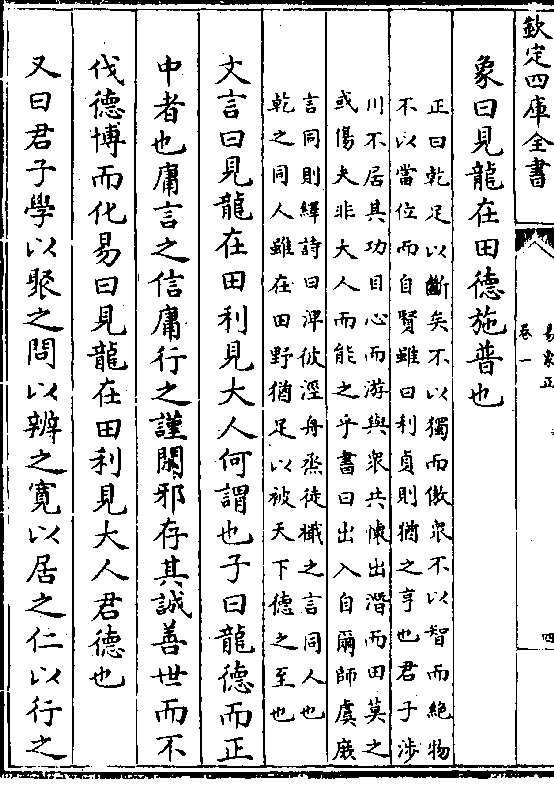 欽定四庫全書
易象正
卷一
四
象曰見龍在田德施普也
正曰乾足以斷矣不以獨而傲衆不以智而絶物
不以當位而自賢雖曰利貞則猶之亨也君子涉
川不居其功目心而游與衆共出潛而田莫之
或傷夫非大人而能之乎書曰出入自爾師虞庶
言同則繹詩曰淠彼涇舟烝徒檝之言同人也
乾之同人雖在田野猶足以被天下德之至也
文言曰見龍在田利見大人何謂也子曰龍德而正
中者也庸言之信庸行之謹閑邪存其誠善世而不
伐德博而化易曰見龍在田利見大人君德也
又曰君子學以聚之問以辨之寛以居之仁以行之